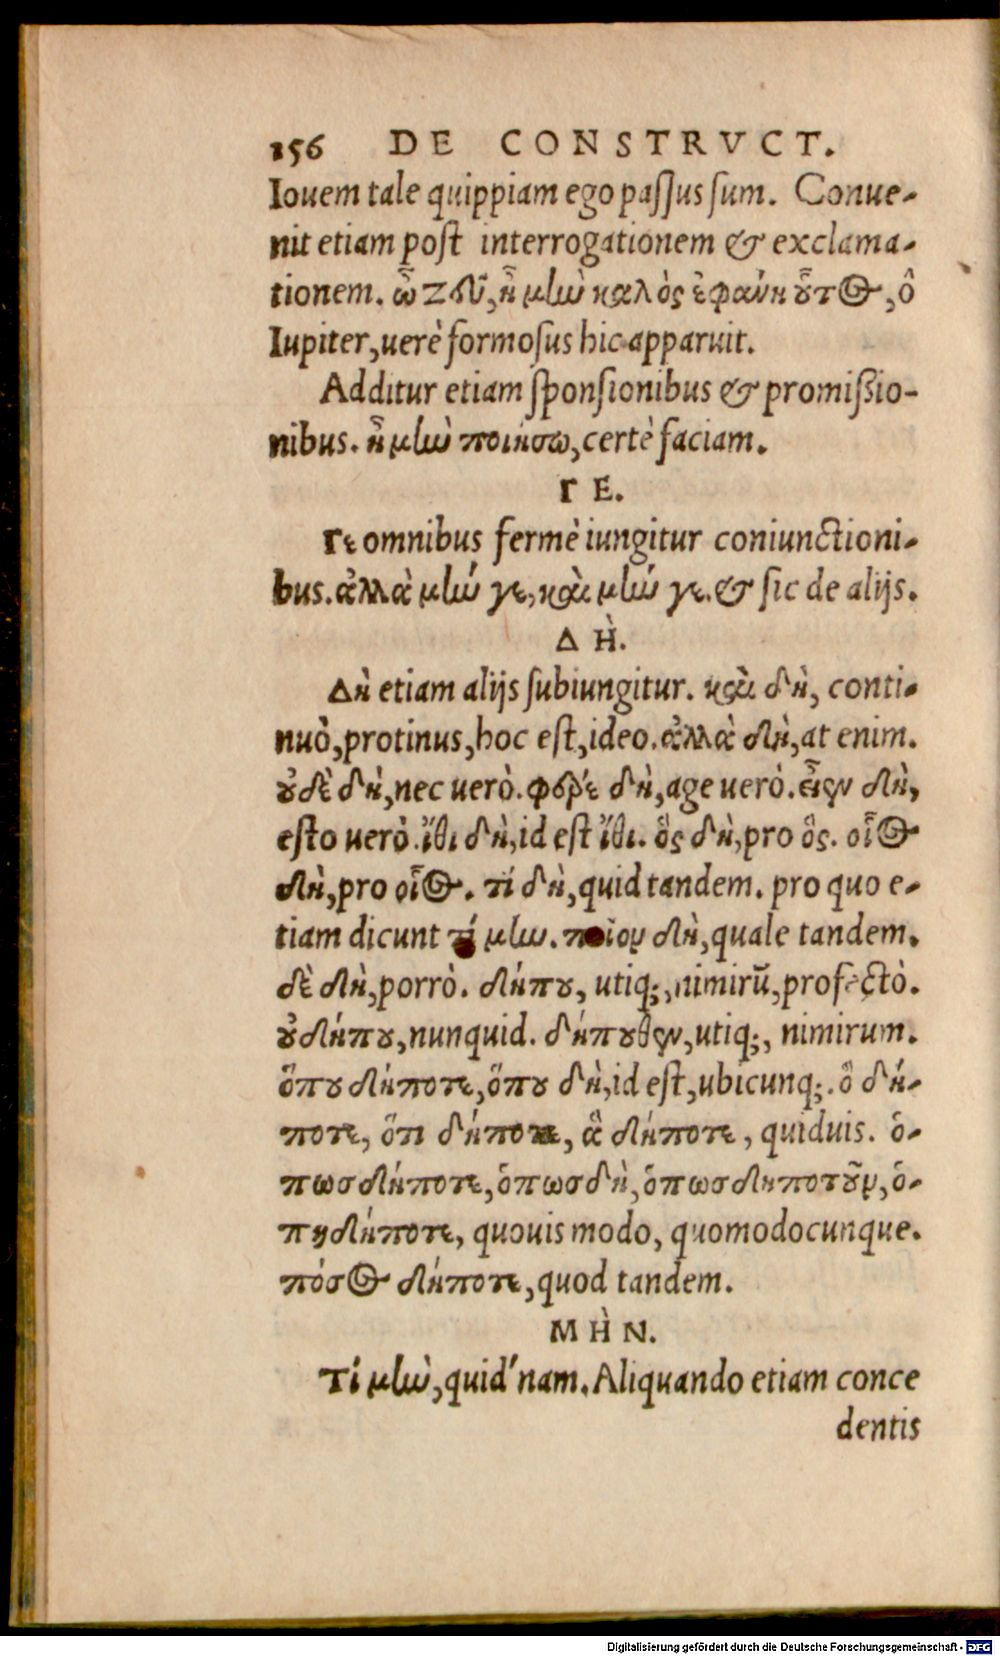 156 DE CONSTRVCT.
Iouem tale quippiam ego passus sum. Conue-
nit etiam post interrogationem & exclama-
tionem. ὦ ζεῦ, ἦ μὴν καλὸς ἐφαύη οὗτος, ô
Iupiter, uerè formosus hic apparuit.
Additur etiam sponsionibus & promissio-
nibus. ἦ μὴν ποιήσω, certè faciam.
Γ Ε.
Γε omnibus fermè iungitur coniunctioni-
bus. ἀλλὰ μήν γε, καὶ μήν γε. & sic de alijs.
Δ Ὴ.
Δὴ etiam alijs subiungitur. καὶ δὴ, conti-
nuò, protinus, hoc est, ideo. ἀλλὰ δὴ, at enim.
οὐδὲ δὴ, nec uerò. φέρε δὴ, age uerò. εἶεν δὴ,
esto uerò. ἴθι δὴ, id est ἴθι. ὃς δὴ, pro ὃς. οἷος
δὴ, pro οἷος. τί δὴ, quid tandem. pro quo e-
tiam dicunt τί μην. ποῖον δὴ, quale tandem.
δὲ δὴ, porrò. δήπου, utiq;, nimirũ, profectò.
οὐδήπου, nunquid. δήπουθεν, utiq;, nimirum.
ὅπου δήποτε, ὅπου δὴ, id est, ubicunq;. ὃ δή-
ποτε, ὅτι δήποτε, ἃ δήποτε, quiduis. ὁ-
πωσδήποτε, ὁπωσδὴ, ὁπωσδηποτοῦν, ὁ-
πῃδήποτε, quouis modo, quomodocunque.
πόσος δήποτε, quod tandem.
Μ Ὴ Ν.
Τί μὴν, quid'nam. Aliquando etiam conce
dentis
Digitalisierung gefördert durch die Deutsche Forschungsgemeinschaft - DFG